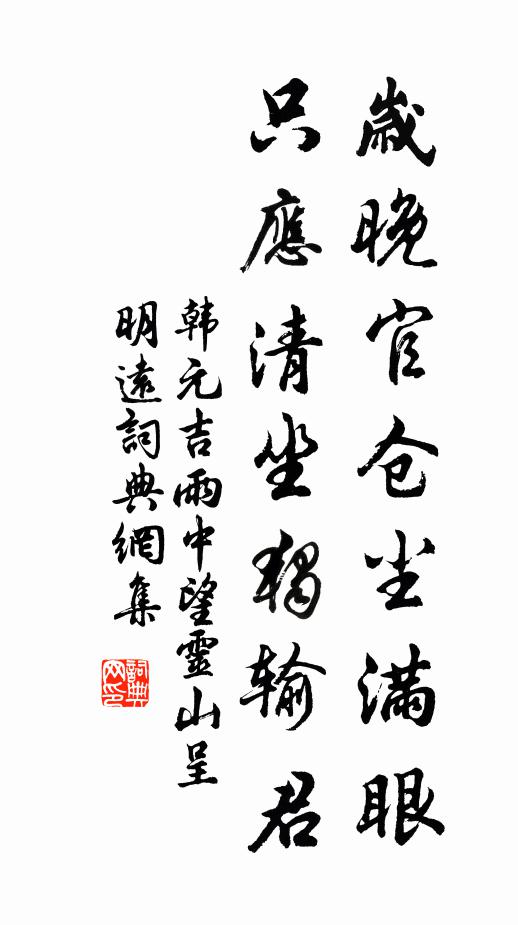 歲晚官仓尘满眼
只應清坐獨输君
韩元吉雨中望靈山呈
明遠詞典網集
詞典网印